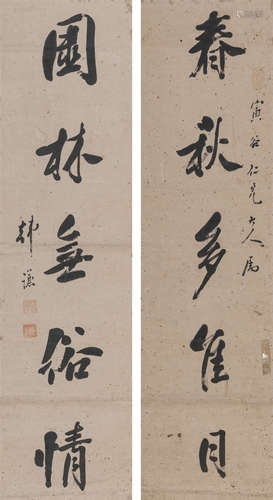 春秋多佳日
寅谷仁兄大人属
園林無俗情